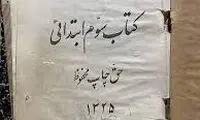 کتاب سوم ابتدائی
حق چاپ محفوظ
۱۳۲۵